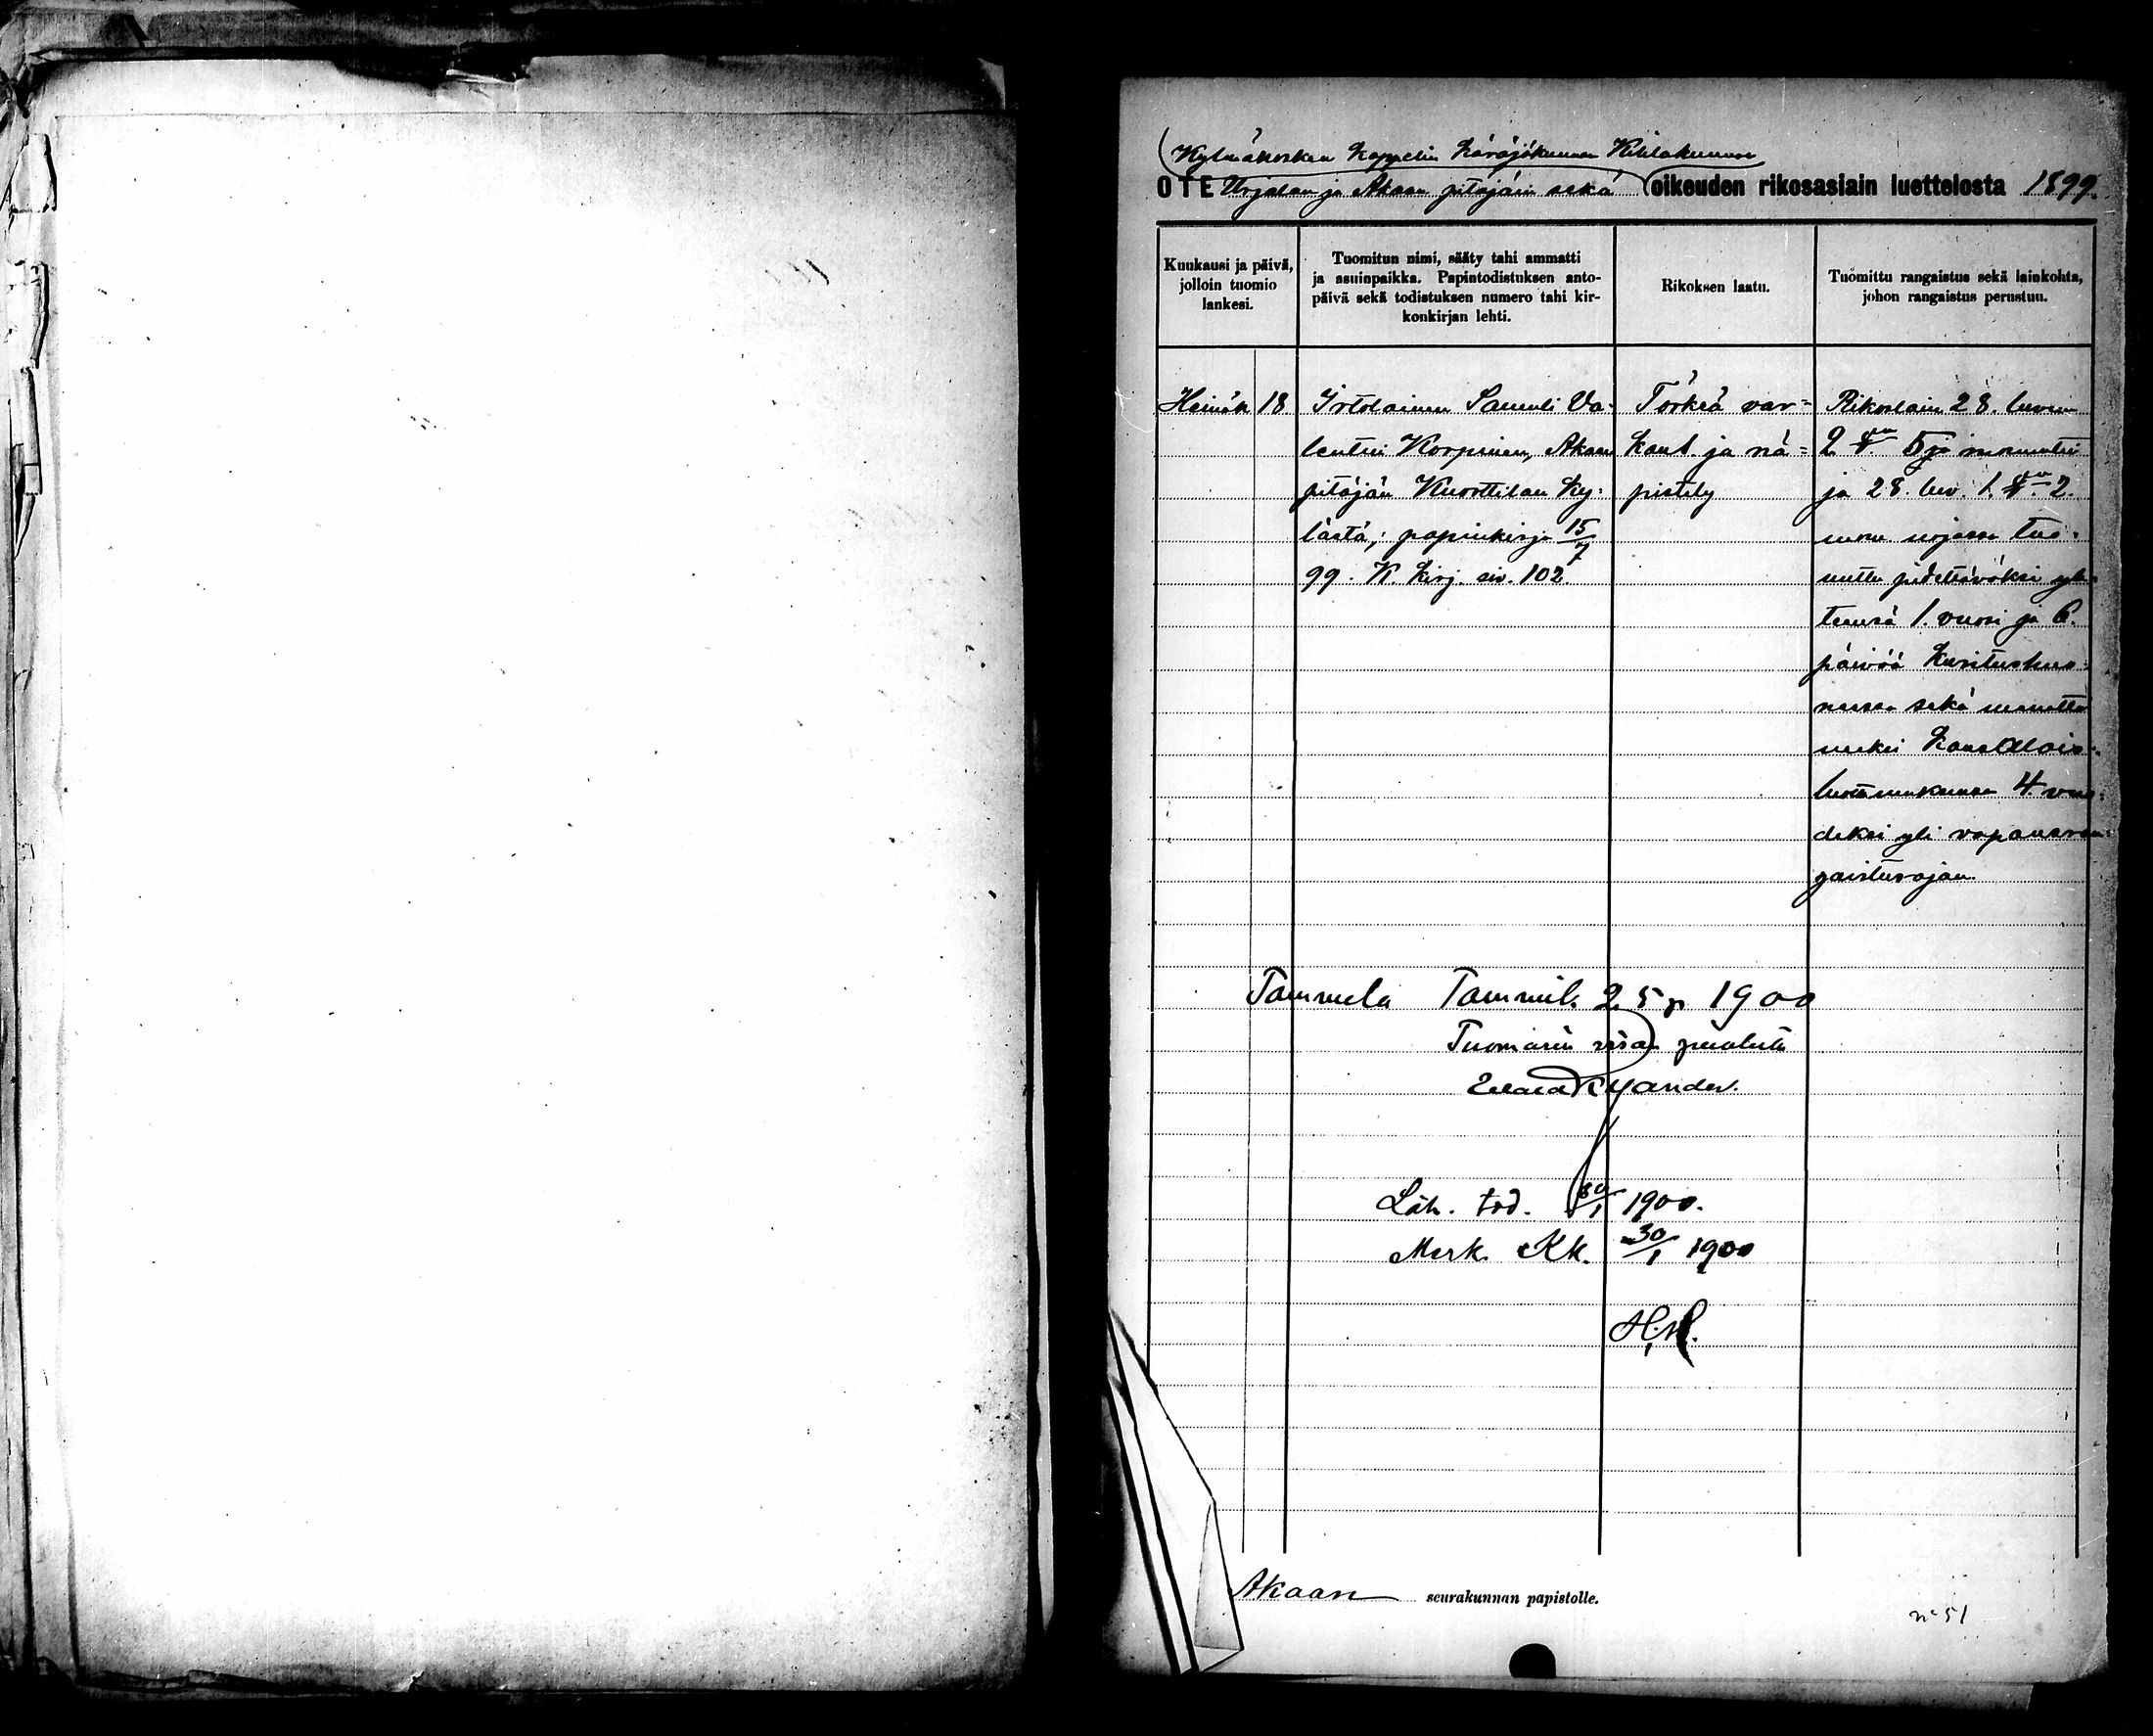 Kylmäkosken kappelin käräjäkunnan Kihlakunnan
OTE Urjalan ja Akaan pitäjäin sekä oikeuden rikosasiain luettelosta 1899.
Kuukausi ja päivä,
jolloin tuomio
lankesi.
Tuomitun nimi, sääty tahi ammatti
ja asuinpaikka. Papintodistuksen anto-
päivä sekä todistuksen numero tahi kir-
konkirjan lehti.
Rikoksen laatu.
Tuomittu rangaistus sekä lainkohta,
johon rangaistus perustuu.
Heinäk 18
Irtolainen Samuli Va-
lentin Korpinen, Akaan
pitäjän Kurttilan ky-
lästä; papinkirja 15/7
99. K. kirj. siv. 102.
Törkeä var=
kaus ja nä=
pistely
Rikoslain 28. luvun
2 §:n 5 ja momentin
ja 28. luv. 1. §:n 2.
mom nojassa tuo-
mittu pidettäväksi yh-
teensä 1. vuosi ja 6.
päivää kuritushuo-
neessa sekä menettä-
neeksi kansalais-
luottamuksensa 4. vuo-
deksi yli vapausran-
gaistusajan.
Tammela Tammik. 25 p 1900
Tuomarin viran puolesta
Kyander.
Läh. tod. 30/1 1900.
Merk. Kk. 30/1 1900
H.H.
Akaan seurakunnan papistolle.
n:o 51